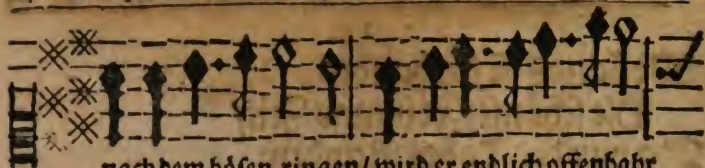 nach dem bösen ringen / wird er endlich offenbahr